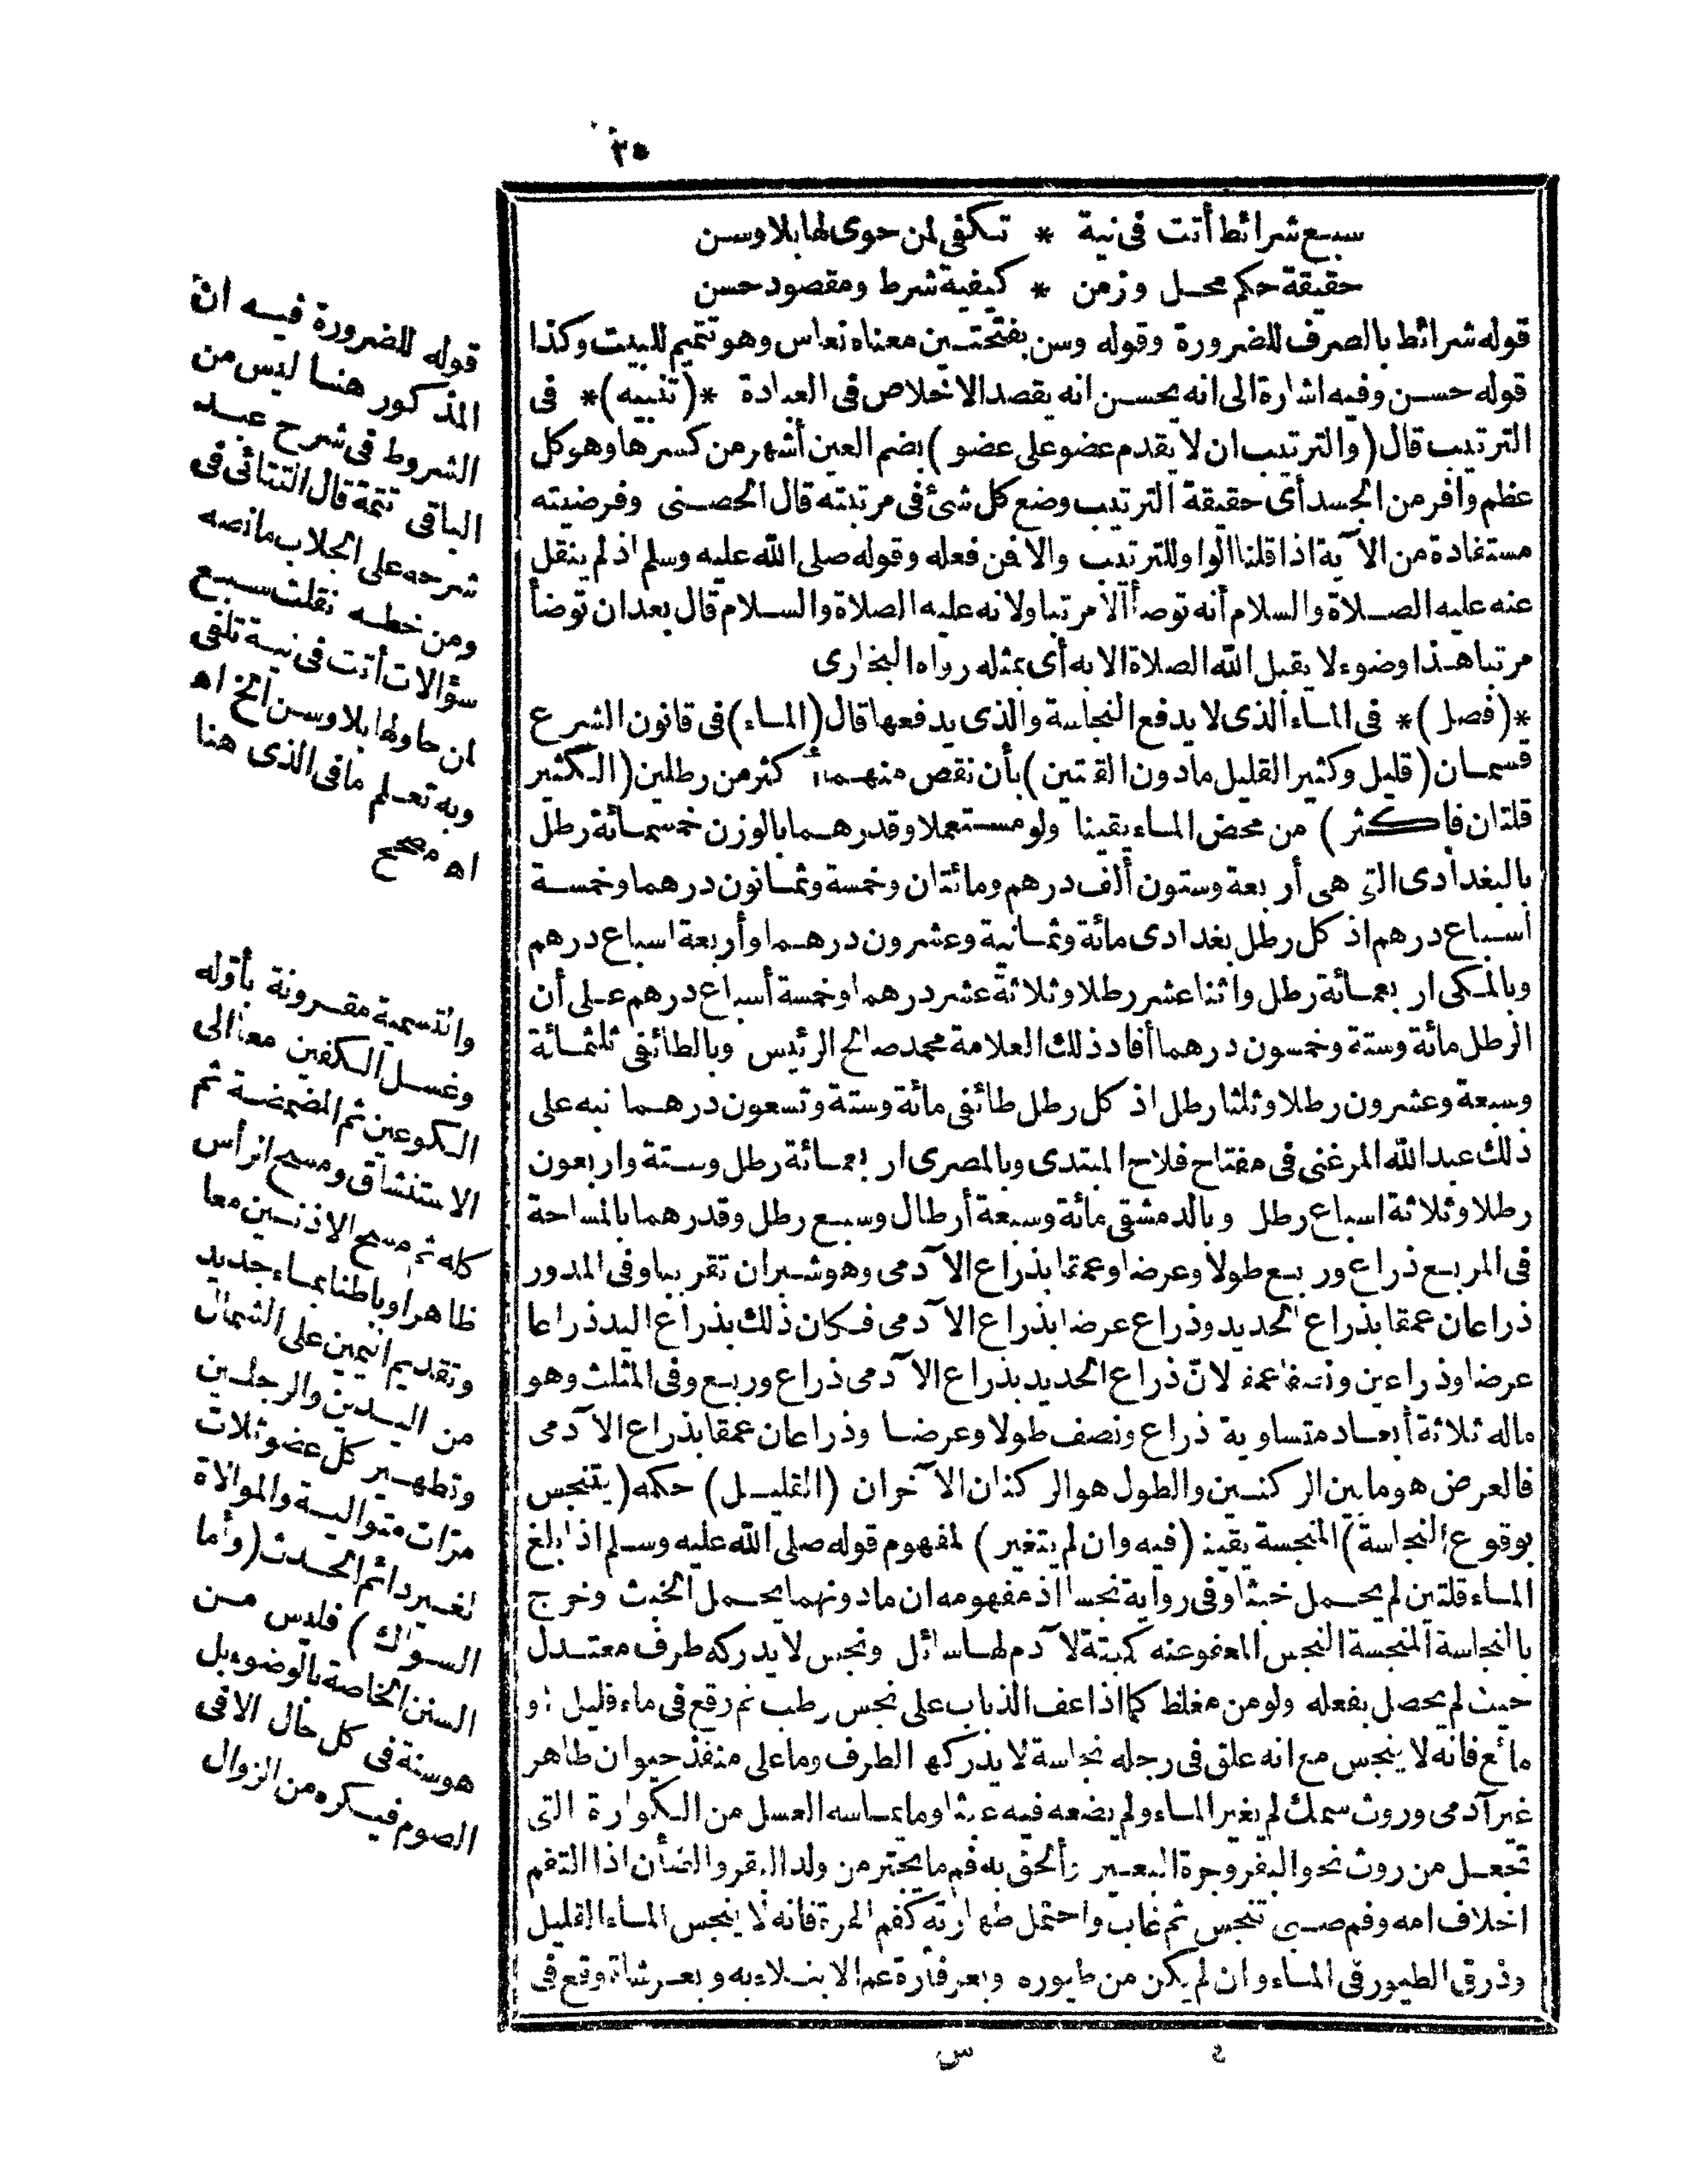 ٢٥
سبع شرائط أتت في نية * تكفي لمن حوى لها بلا وسن
حقيقة حكم محل وزمن * كيفية شرط ومقصود حسن
قوله شرائط بالصرف للضرورة وقوله وسن بفتحتين معناه نعاس وهو تتميم للبيت وكذا
قوله حسن وفيه اشارة الى انه يحسن انه يقصد الاخلاص في العبادة *(تنبيه)* في
الترتيب قال (والترتيب ان لا يقدم عضو على عضو) بضم العين أشهر من كسرها وهو كل
عظم وافر من الجسد أي حقيقة الترتيب وضع كل شئ في مرتبته قال الحصنى وفرضيته
مستفادة من الآية اذا قلنا الواو للترتيب والا فمن فعله وقوله صلى الله عليه وسلم اذ لم ينقل
عنه عليه الصلاة والسلام أنه توضأ الا مرتبا ولانه عليه الصلاة والسلام قال بعد ان توضأ
مرتبا هذا وضوء لا يقبل الله الصلاة الا به أى بمثله رواه البخارى
*(فصل)* فى الماء الذى لا يدفع النجاسة والذى يدفعها قال (الماء) فى قانون الشرع
قسمان (قليل وكثير القليل مادون القلتين) بأن نقص منهما أكثر من رطلين (الكثير
قلتان فاكثر) من محض الماء يقينا ولو مستعملا وقدرهما بالوزن خمسمائة رطل
بالبغدادى التي هى أربعة وستون ألف درهم ومائتان وخمسة وثمانون درهما وخمسة
أسباع درهم اذ كل رطل بغدادى مائة وثمانية وعشرون درهما وأربعة اسباع درهم
وبالمكى اربعمائة رطل واثنا عشر رطلا وثلاثة عشر درهما وخمسة أسباع درهم على أن
الرطل مائة وستة وخمسون درهما أفاد ذلك العلامة محمد صالح الرئيس وبالطائفى ثلثمائة
وسبعة وعشرون رطلا وثلثا رطل اذ كل رطل طائفى مائة وستة وتسعون درهما نبه على
ذلك عبد الله المرغنى فى مفتاح فلاح المبتدى وبالمصرى اربعمائة رطل وستة واربعون
رطلا وثلاثة اسباع رطل وبالدمشقى مائة وسبعة أرطال وسبع رطل وقدرهما بالمساحة
فى المربع ذراع وربع طولا وعرضا وعمقا بذراع الآدمى وهو شبران تقريبا وفى المدور
ذراعان عمقا بذراع الحديد وذراع عرضا بذراع الآدمى فكان ذلك بذراع اليد ذراعا
عرضا وذراعين ونصفا عمقا لانّ ذراع الحديد بذراع الآدمى ذراع وربع وفى المثلث وهو
ماله ثلاثة أبعاد متساوية ذراع ونصف طولا وعرضا وذراعان عمقا بذراع الآدمى
فالعرض هو ما بين الركنين والطول هو الركنان الآخران (القليل) حكمه (يتنجس
بوقوع النجاسة) المنجسة يقينا (فيه وان لم يتغير) لمفهوم قوله صلى الله عليه وسلم اذا بلغ
الماء قلتين لم يحمل خبثا وفى رواية نجسا اذ مفهومه ان مادونهما يحمل الخبث وخرج
بالنجاسة المنجسة النجس المعفو عنه كميتة لا دم لها سائل ونجس لا يدركه طرف معتدل
حيث لم يحصل بفعله ولو من مغلظ كما اذا عف الذباب على نجس رطب ثم وقع فى ماء قليل او
مائع فانه لا ينجس مع انه علق فى رجله نجاسة لا يدركها الطرف وما على منفذ حيوان طاهر
غير آدمى وروث سمك لم يغير الماء ولم يضعه فيه عبثا وما يماسه العسل من الكوارة التى
تجعل من روث نحو البقر وجرة البعير وألحق به فم ما يجتر من ولد البقر والضأن اذا التقم
اخلاف امه وفم صبى تنجس ثم غاب واحتمل طهارته كفم الهرة فانه لا ينجس الماء القليل
وذرق الطيور فى الماء وان لم يكن من طيوره وبعر فأرة عم الابتلاء به وبعر شاة وقع فى
٤ س
قوله للضرورة فيه ان
المذكور هنا ليس من
الشروط فى شرح عبد
الباقى تتمة قال التتائى فى
شرحه على الجلاب مانصه
ومن خطه نقلت سبع
سؤالات أتت فى نية تلقى
لمن حاولها بلا وسن الخ اه
وبه تعلم ما فى الذى هنا
اه مصحح
والتسمية مقرونة بأوله
وغسل الكفين معا الى
الكوعين ثم المضمضة ثم
الاستنشاق ومسح الرأس
كله ثم مسح الاذنين معا
ظاهرا وباطنا بماء جديد
وتقديم اليمين على الشمال
من اليدين والرجلين
وتطهير كل عضو ثلاث
مرّات متوالية والموالاة
لغير دائم الحدث (وأما
السواك) فليس من
السنن الخاصة بالوضوء بل
هو سنة فى كل حال الا فى
الصوم فيكره من الزوال